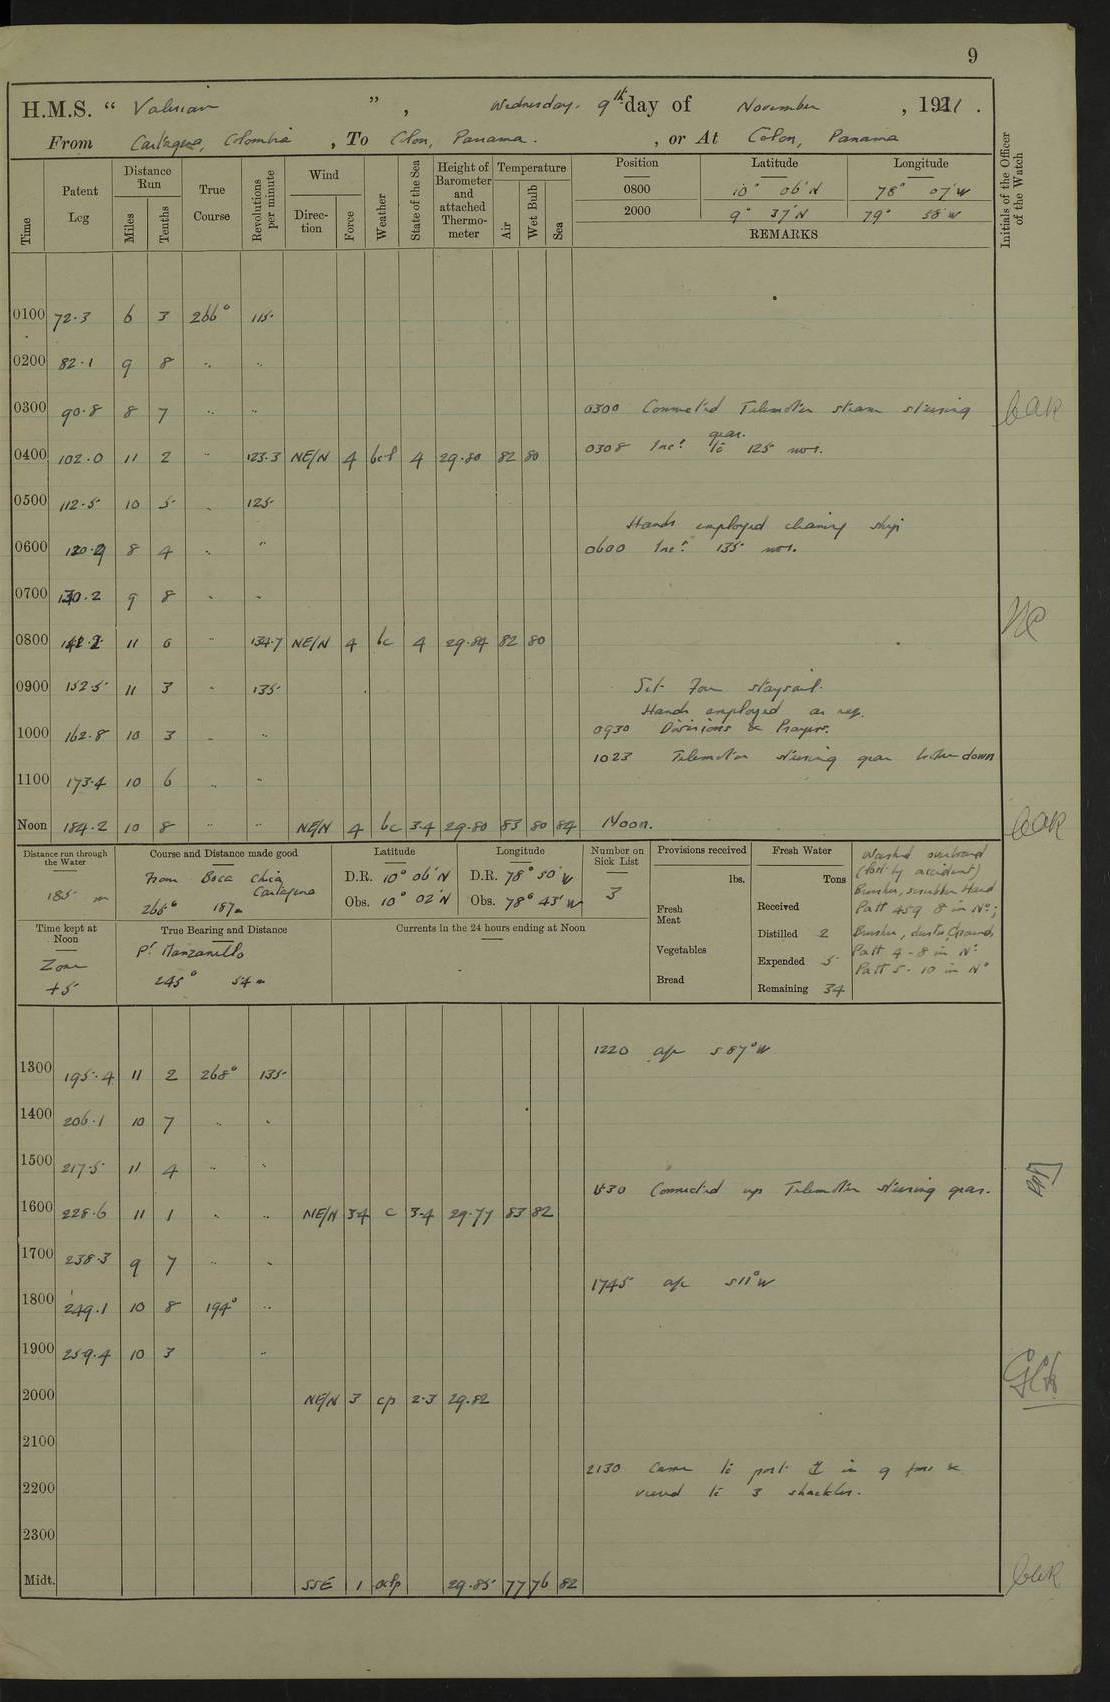 9
H.M.S. " Valerian " , Wednesday, 9th day of November , 1921 .
From Cartagena, Colombia , To Colon, Panama. , or At Colon, Panama
Time Patent Log Distance Run Miles Tenths True Course Revolutions per minute Wind Direction Force Weather State of the Sea Height of Barometer and attached Thermometer Temperature Air Wet Bulb Sea Position Latitude Longitude Initials of the Officer of the Watch
0800 10° 06' N 78° 07' W
2000 9° 37' N 79° 58' W
REMARKS
0100 72.3 6 3 266° 115
0200 82.1 9 8 " "
0300 90.8 8 7 " " 0300 Connected Telemotor steam steering gear.
0400 102.0 11 2 " 123.3 NE/N 4 4 29.80 82 80 0308 Inc: to 125 revs.
0500 112.5 10 5 " 125
Hands employed cleaning ship
0600 120.9 8 4 " " 0600 Inc: 135 revs.
0700 130.2 9 8 " "
0800 11 0 " 134.7 NE/N 4 bc 4 29.84 82 80
0900 152.5 11 3 " 135 Set Fore staysail.
Hands employed as req.
0930 Divisions & Prayers.
1000 162.8 10 3 " "
1023 Telemotor steering gear broken down
1100 173.4 10 6 " "
Noon 184.2 10 8 " " NE/N 4 bc 3.4 29.80 83 80 84 Noon.
Distance run through the Water 185 m
Course and Distance made good From Boca Chica, Cartagena 266° 187m
Latitude D.R. 10° 06' N Obs. 10° 02' N
Longitude D.R. 78° 50' W Obs. 78° 43' W
Number on Sick List 3
Provisions received lbs. Fresh Meat Vegetables Bread
Fresh Water Tons Received Distilled 2 Expended 5 Remaining 34
Washed overboard
(lost by accident)
Brushes, scrubber Hand
Patt 459 8 in No;
Patt 4 - 8 in No
Patt 5 - 10 in No
Time kept at Noon Zone +5
True Bearing and Distance Pt Manzanillo 245° 54m
Currents in the 24 hours ending at Noon
1220 a/c S 87° W
1300 195.4 11 2 268° 135
1400 206.1 10 7 " "
1500 217.5 11 4 " "
1530 Connected up Telemotor steering gear.
1600 228.6 11 1 " " NE/N 3.4 c 3.4 29.77 83 82
1700 238.3 9 7 " "
1745 a/c S 11° W
1800 249.1 10 8 194° "
1900 259.4 10 3 "
2000 NE/N 3 cp 2.3 29.82
2100
2130 Came to port in 9 fms &
veered to 3 shackles.
2200
2300
Midt. SSE 1 29.85 77 76 82